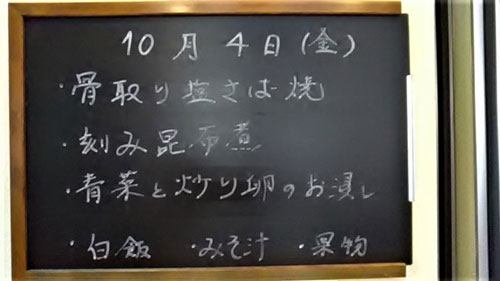 10月4日(金)
・骨取り塩さば焼
・刻み昆布煮
・青菜と炒り卵のお浸し
・白飯 ・みそ汁 ・果物